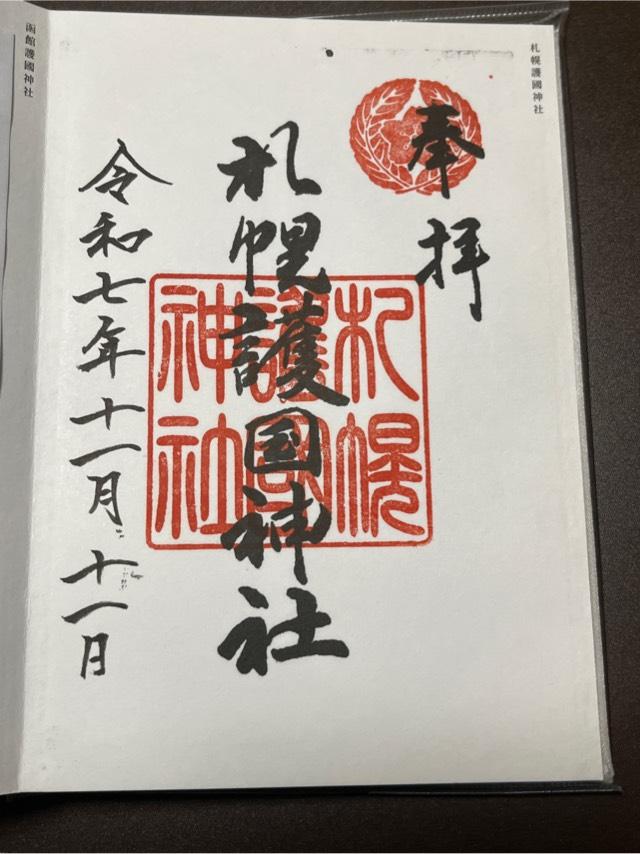 札幌護國神社
奉拝
札幌護国神社
札幌
護國
神社
令和七年十一月十一日
函館護國神社